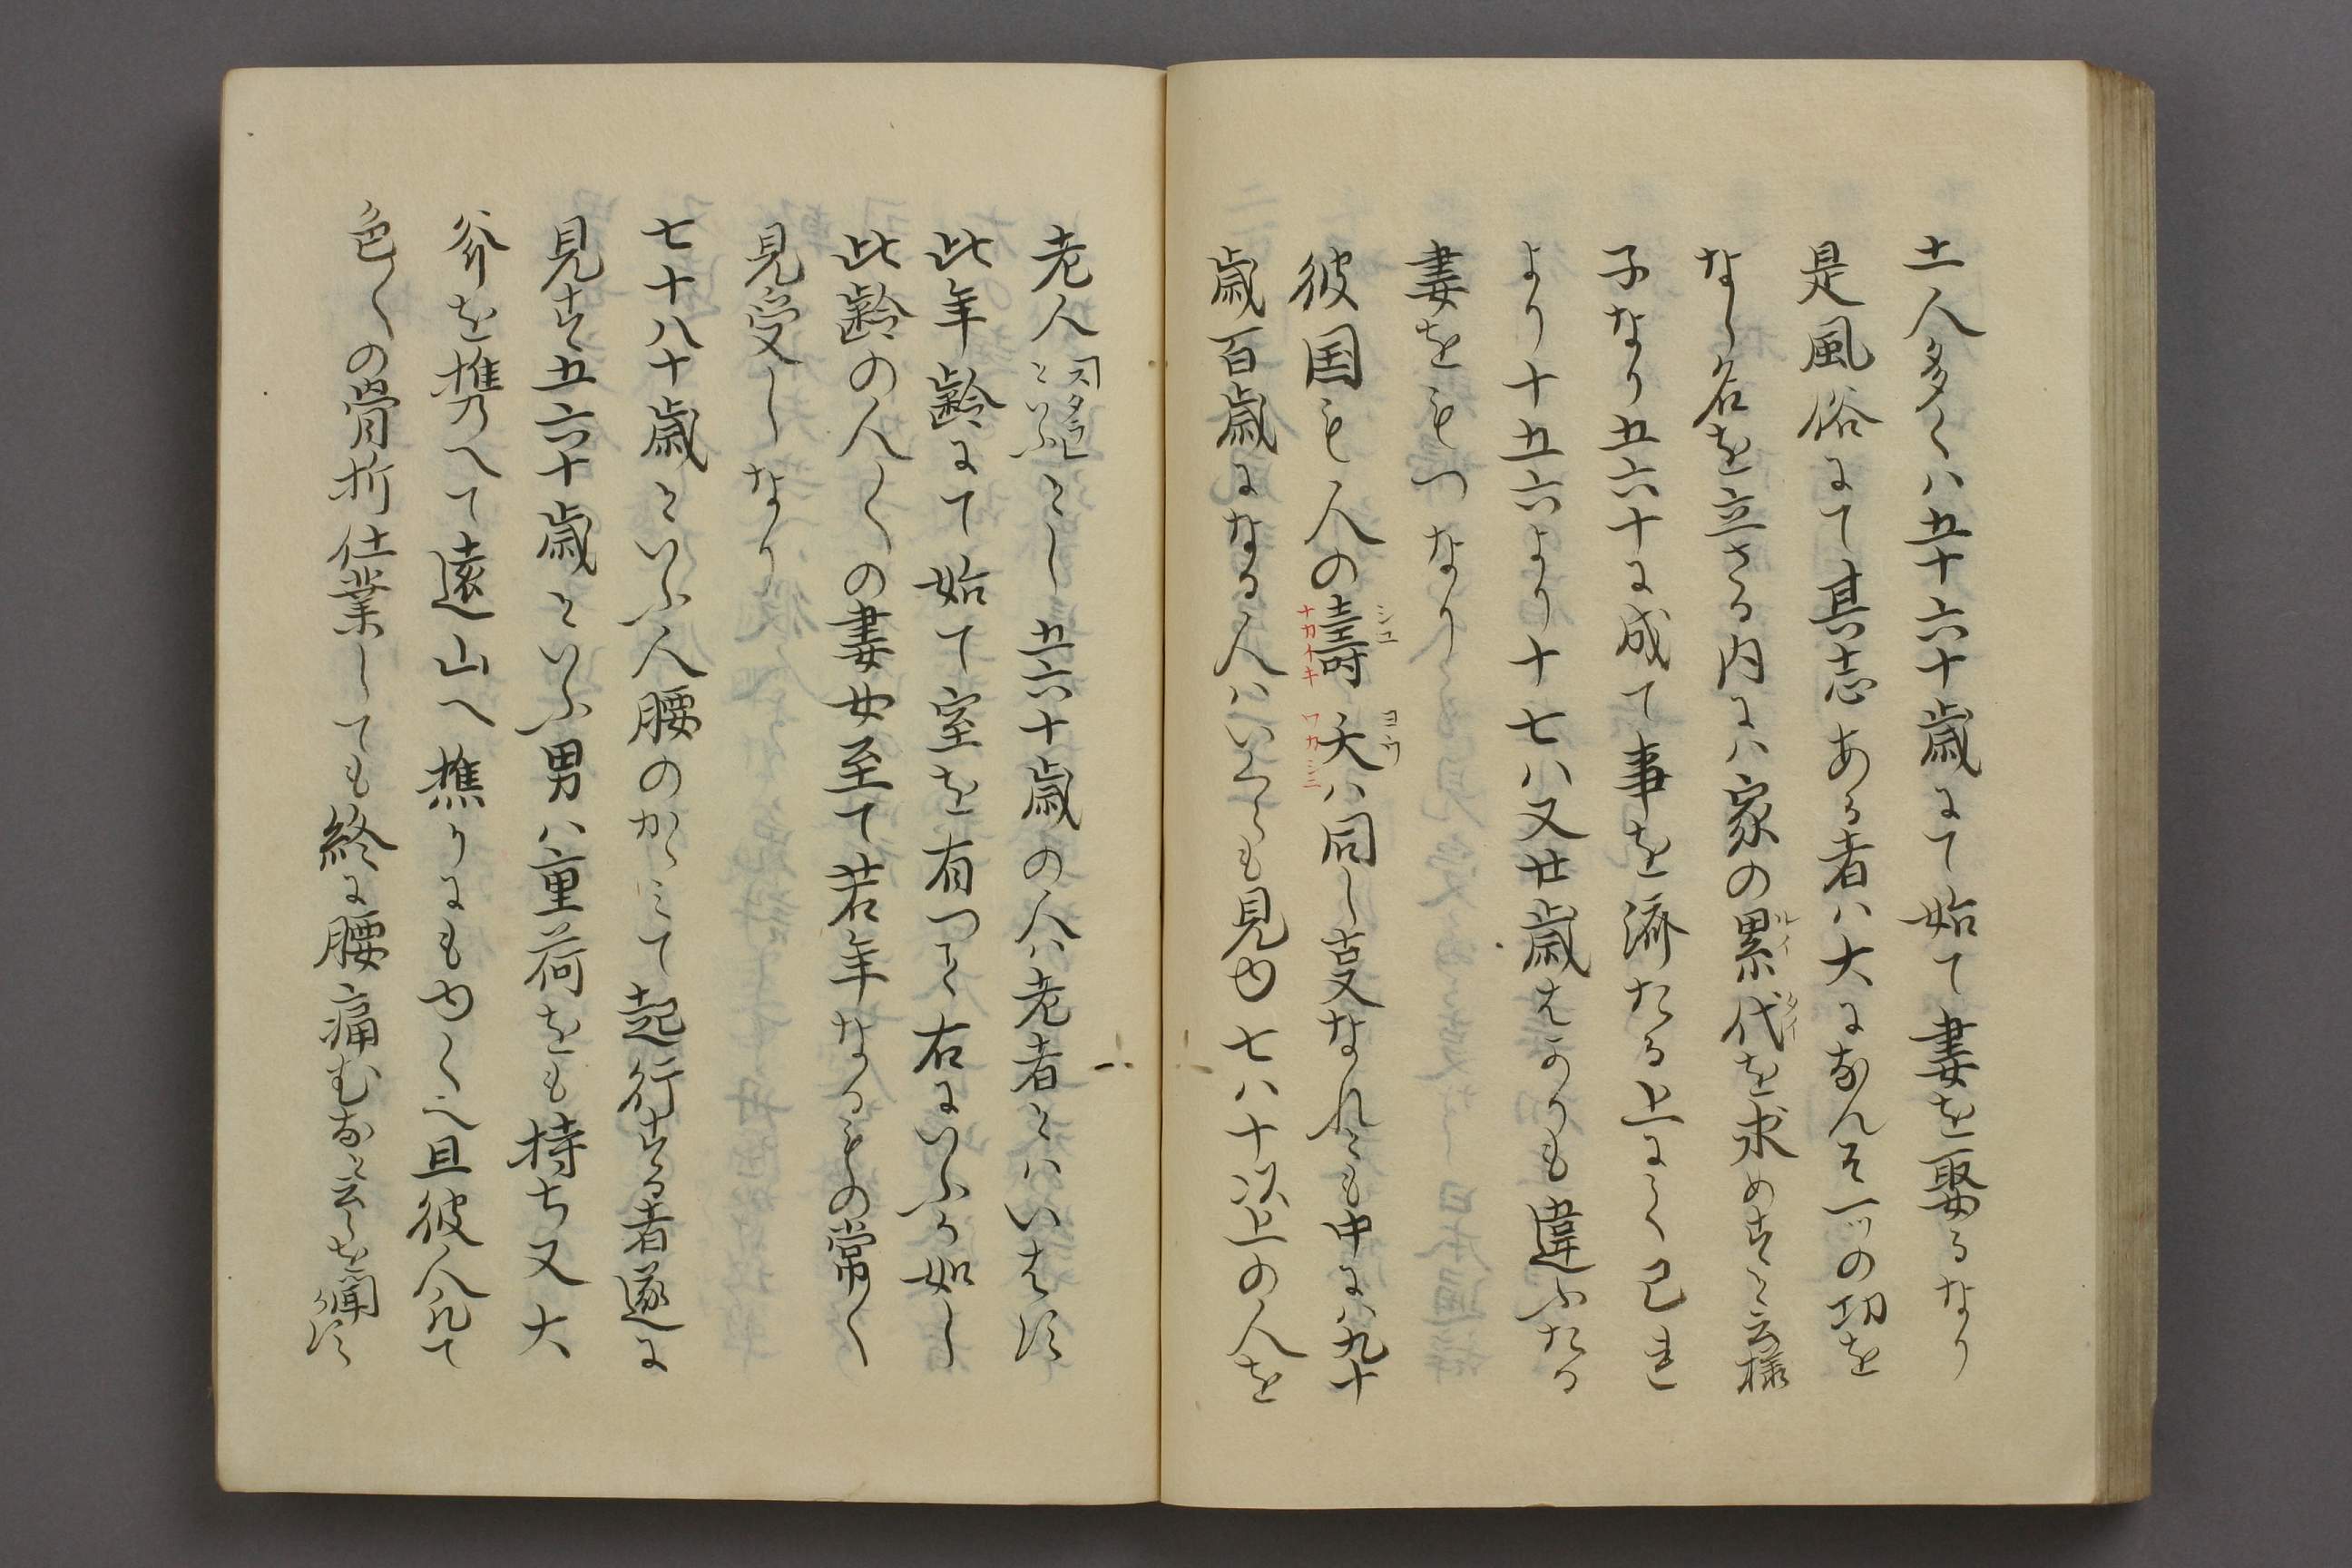 土人多くハ五十六十歳にて始て妻を娶るなり
是風俗にて其志ある者ハ大になんそ一ッの功を
なし名を立さる内にハ家の累代を求めすと云様
ルイ タイ
子なり五六十に成て事を済たる上にして己れ
より十五六より十七八又廿歳はかりも違ふたる
妻をもつなり
彼国も人の壽夭ハ同し叓なれとも中にハ九十
シユ ヨウ
ナカイキ ワカシニ
歳百歳になる人ハいくらも見ゆ七八十以上の人を
老人とし五六十歳の人ハ老者とハいはす
スタラヒといふ
此年齢にて始て室を有つ事右にいふか如し
此齢の人〱の妻女至て若年なるもの常〱
見受しなり
七十八十歳といふ人腰のかゝミて起行する者遂に
見す五六十歳といふ男ハ重荷をも持ち又大
斧を携へて遠山へ樵りにもゆく也且彼人凡て
色〱の骨折仕業しても終に腰痛むなと云しを聞かす